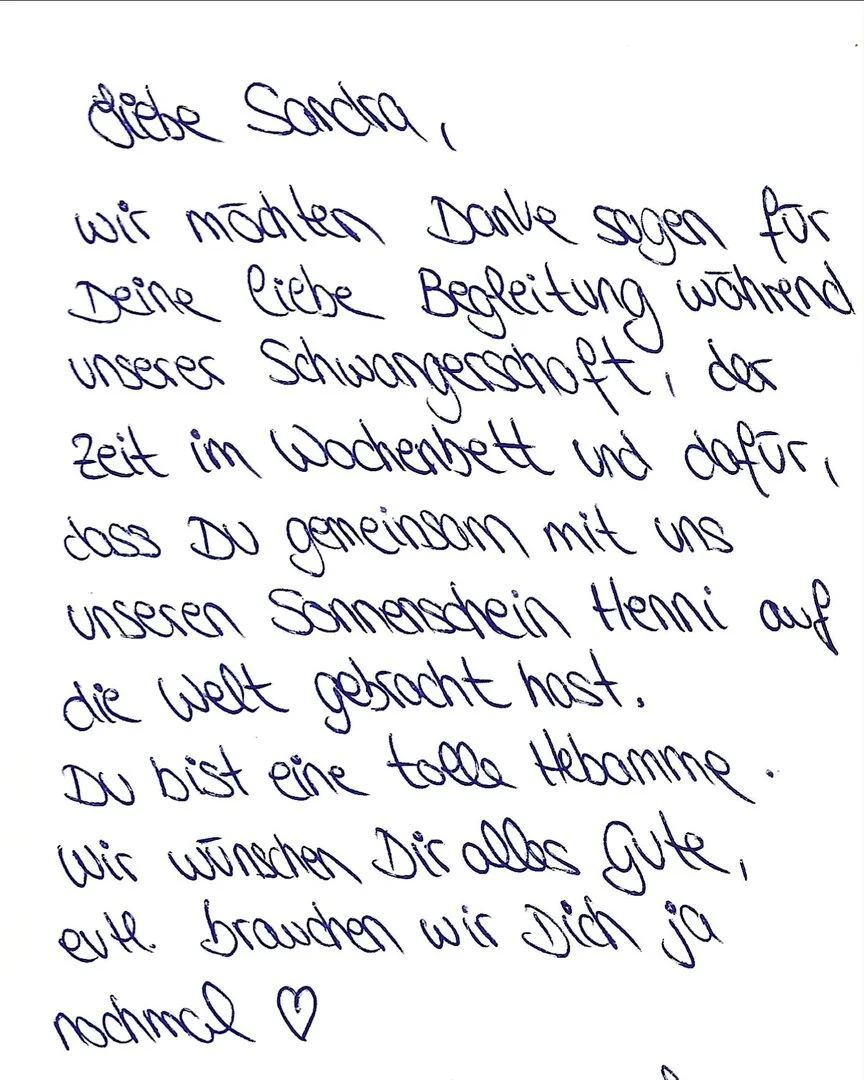 Liebe Sandra,
wir möchten Danke sagen für
Deine liebe Begleitung während
unserer Schwangerschaft, der
Zeit im Wochenbett und dafür,
dass Du gemeinsam mit uns
unseren Sonnenschein Henni auf
die Welt gebracht hast.
Du bist eine tolle Hebamme.
Wir wünschen Dir alles Gute,
evtl. brauchen wir Dich ja
nochmal ♡